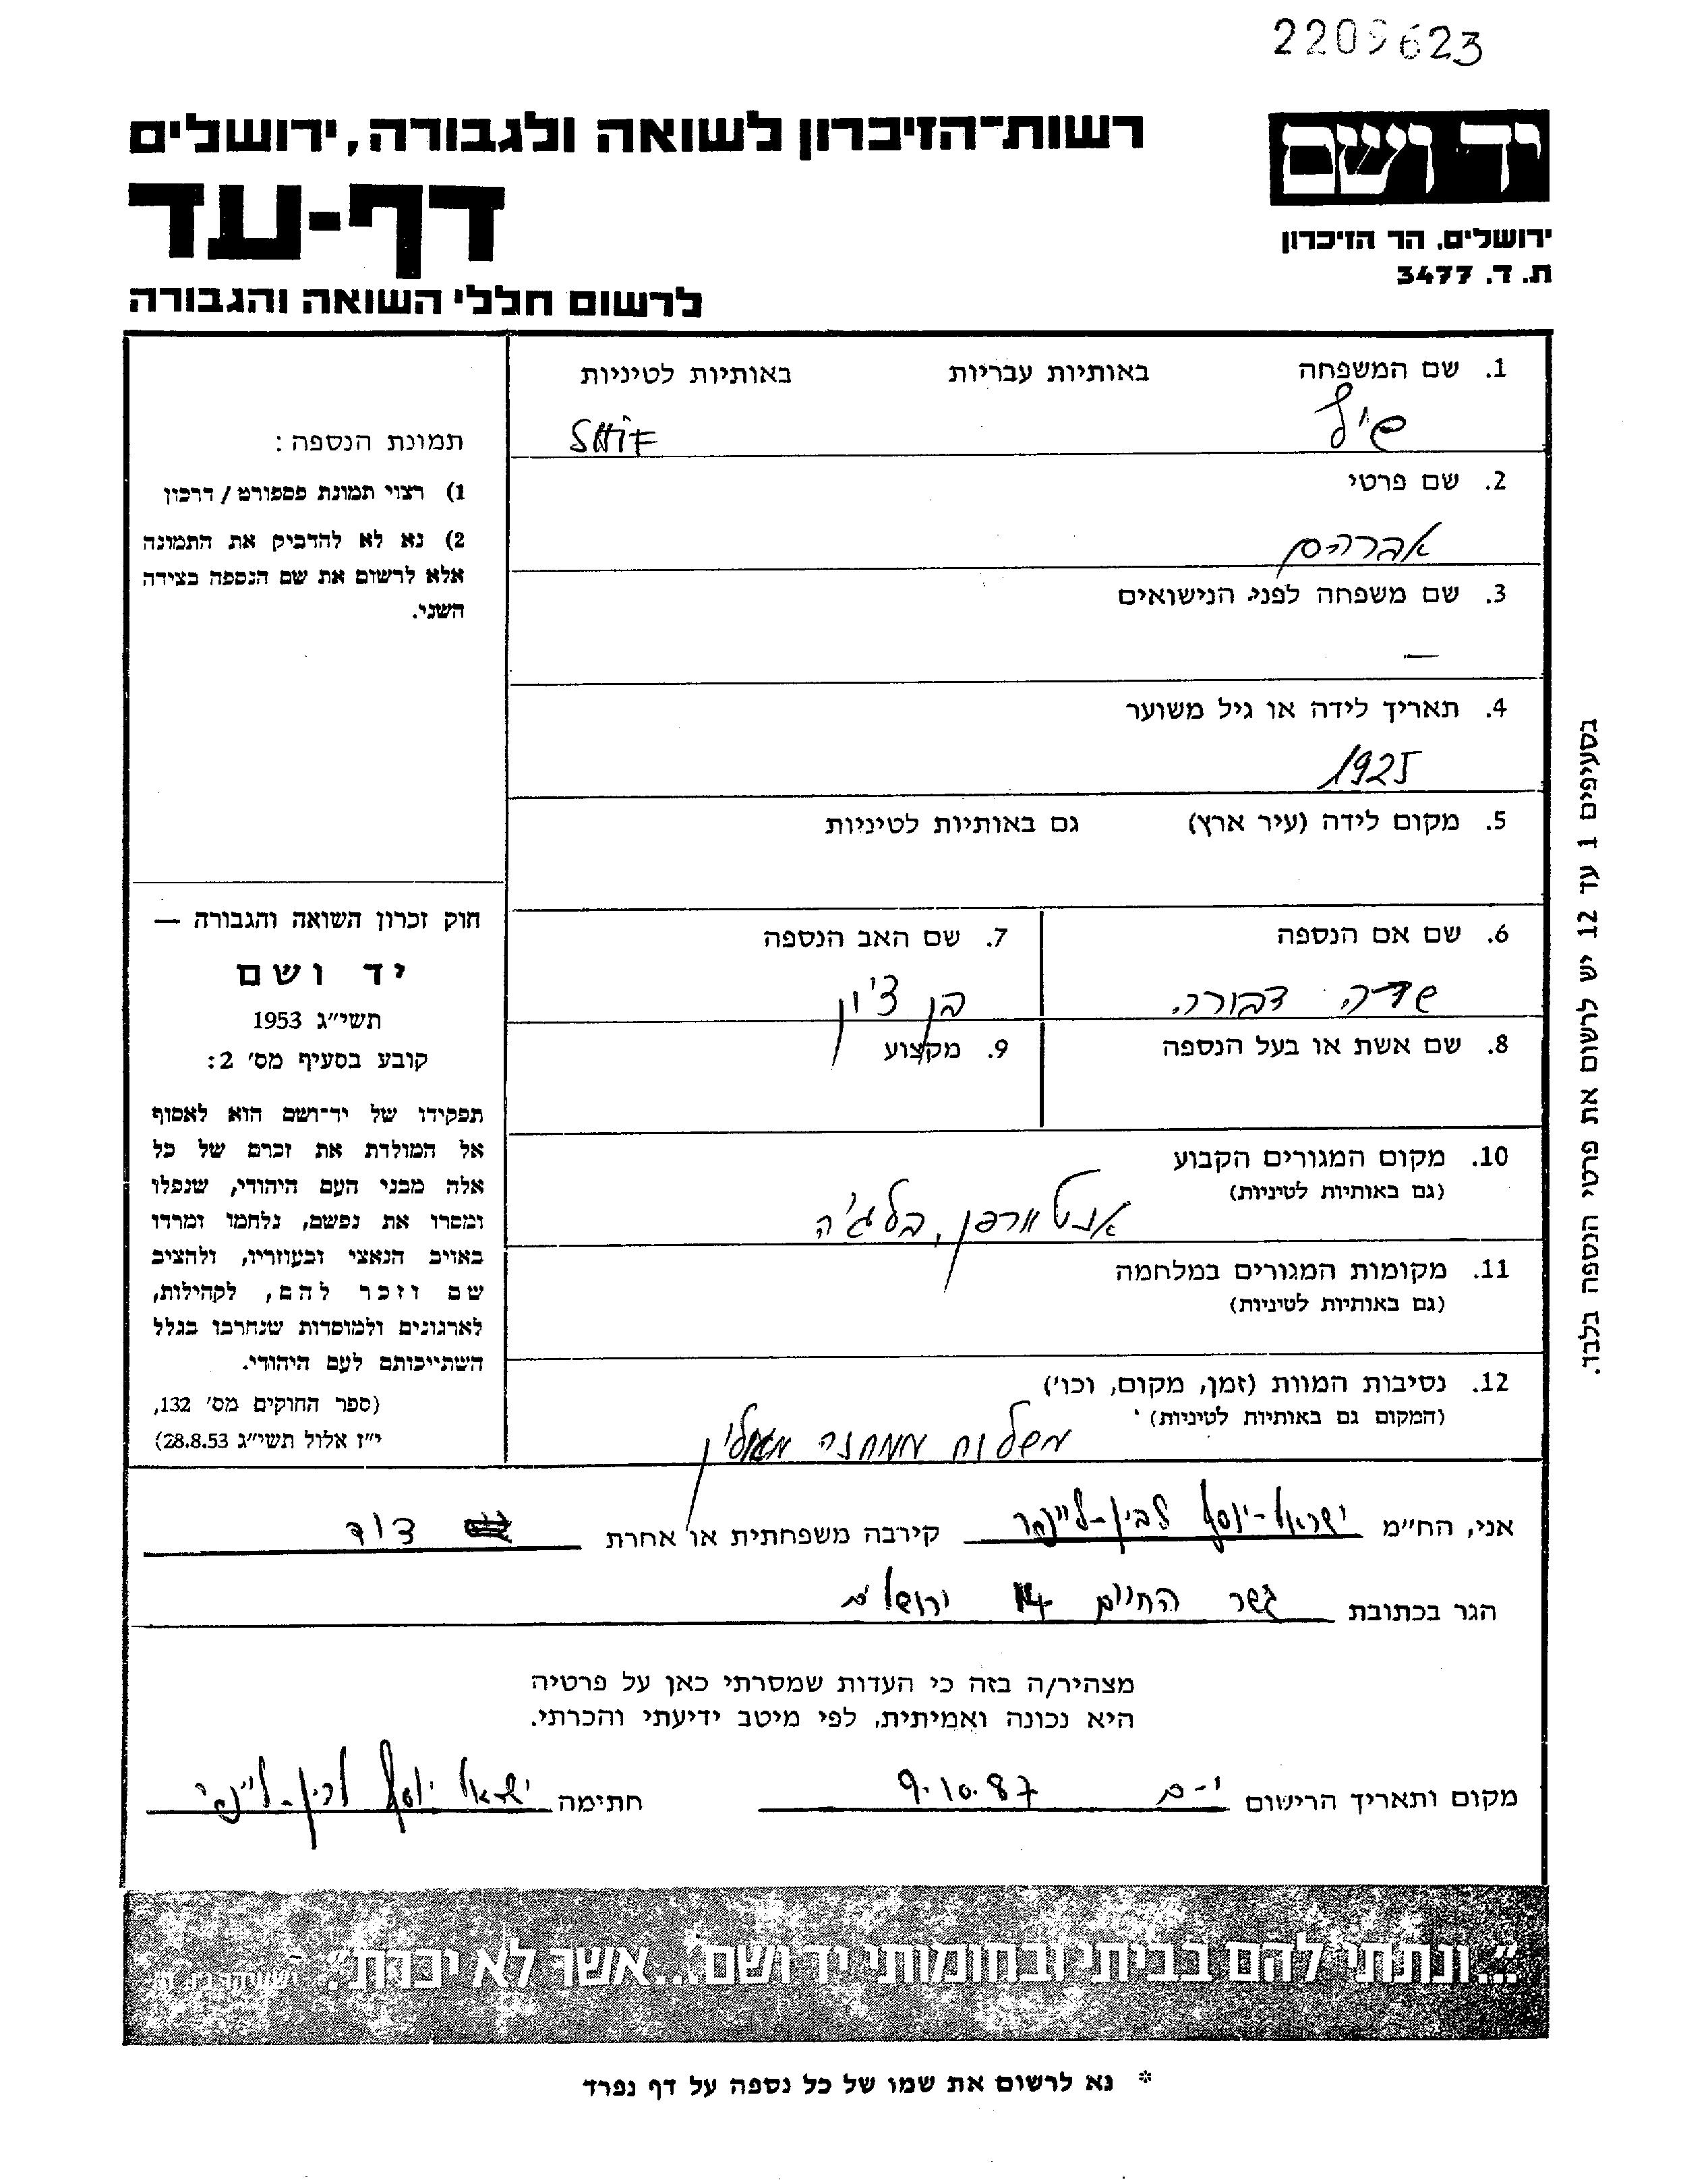 2209623
יד ושם
רשות־הזיכרון לשואה ולגבורה, ירושלים
דף-עד
ירושלים. הר הזיכרון
ת. ד. 3477
לרשום חללי השואה והגבורה
1. שם המשפחה באותיות עבריות באותיות לטיניות
שיף SHiF
2. שם פרטי
אברהם
3. שם משפחה לפני הנישואים
—
4. תאריך לידה או גיל משוער
1925
5. מקום לידה (עיר ארץ) גם באותיות לטיניות
6. שם אם הנספה
שרה דבורה
7. שם האב הנספה
בן ציון
8. שם אשת או בעל הנספה
9. מקצוע
10. מקום המגורים הקבוע
(גם באותיות לטיניות)
אנטוורפן, בלגיה
11. מקומות המגורים במלחמה
(גם באותיות לטיניות)
12. נסיבות המוות (זמן, מקום, וכו')
(המקום גם באותיות לטיניות)
משלוח ממחנה מאלין
תמונת הנספה:
1) רצוי תמונת פספורט / דרכון
2) נא לא להדביק את התמונה
אלא לרשום את שם הנספה בצידה
השני.
חוק זכרון השואה והגבורה —
יד ושם
תשי״ג 1953
קובע בסעיף מס' 2:
תפקידו של יד־ושם הוא לאסוף
אל המולדת את זכרם של כל
אלה מבני העם היהודי, שנפלו
ומסרו את נפשם, נלחמו ומרדו
באויב הנאצי ובעוזריו, ולהציב
שם וזכר להם, לקהילות,
לארגונים ולמוסדות שנחרבו בגלל
השתייכותם לעם היהודי.
(ספר החוקים מס' 132,
י״ז אלול תשי״ג 28.8.53)
בסעיפים 1 עד 12 יש לרשום את פרטי הנספה בלבד.
אני, הח״מ ישראל-יוסף קירבה משפחתית או אחרת דוד
הגר בכתובת גשר החיים 14 ירושלים
מצהיר/ה בזה כי העדות שמסרתי כאן על פרטיה
היא נכונה ואמיתית, לפי מיטב ידיעתי והכרתי.
מקום ותאריך הרישום י-ם 9.10.87 חתימה ישראל יוסף
"...ונתתי להם בביתי ובחומותי יד ושם...אשר לא יכרת".
* נא לרשום את שמו של כל נספה על דף נפרד